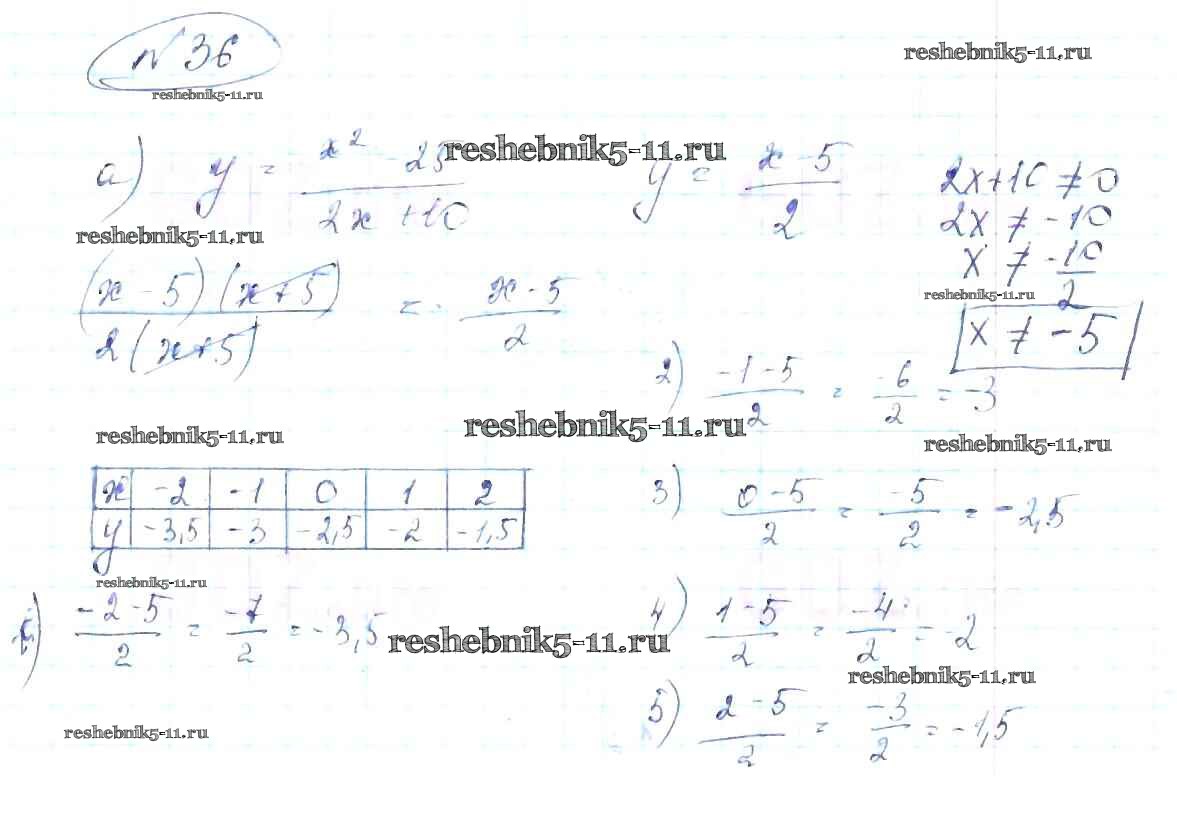 № 36
reshebnik5-11.ru
reshebnik5-11.ru
а) y = x² - 25 / 2x + 10
reshebnik5-11.ru
y = x - 5 / 2
2x + 10 ≠ 0
2x ≠ -10
x ≠ -10 / 2
reshebnik5-11.ru
x ≠ -5
reshebnik5-11.ru
(x - 5)(x + 5) / 2(x + 5) = x - 5 / 2
2) -1 - 5 / 2 = -6 / 2 = -3
reshebnik5-11.ru
reshebnik5-11.ru
reshebnik5-11.ru
x -2 -1 0 1 2
y -3,5 -3 -2,5 -2 -1,5
3) 0 - 5 / 2 = -5 / 2 = -2,5
reshebnik5-11.ru
1) -2 - 5 / 2 = -7 / 2 = -3,5
reshebnik5-11.ru
4) 1 - 5 / 2 = -4 / 2 = -2
reshebnik5-11.ru
5) 2 - 5 / 2 = -3 / 2 = -1,5
reshebnik5-11.ru